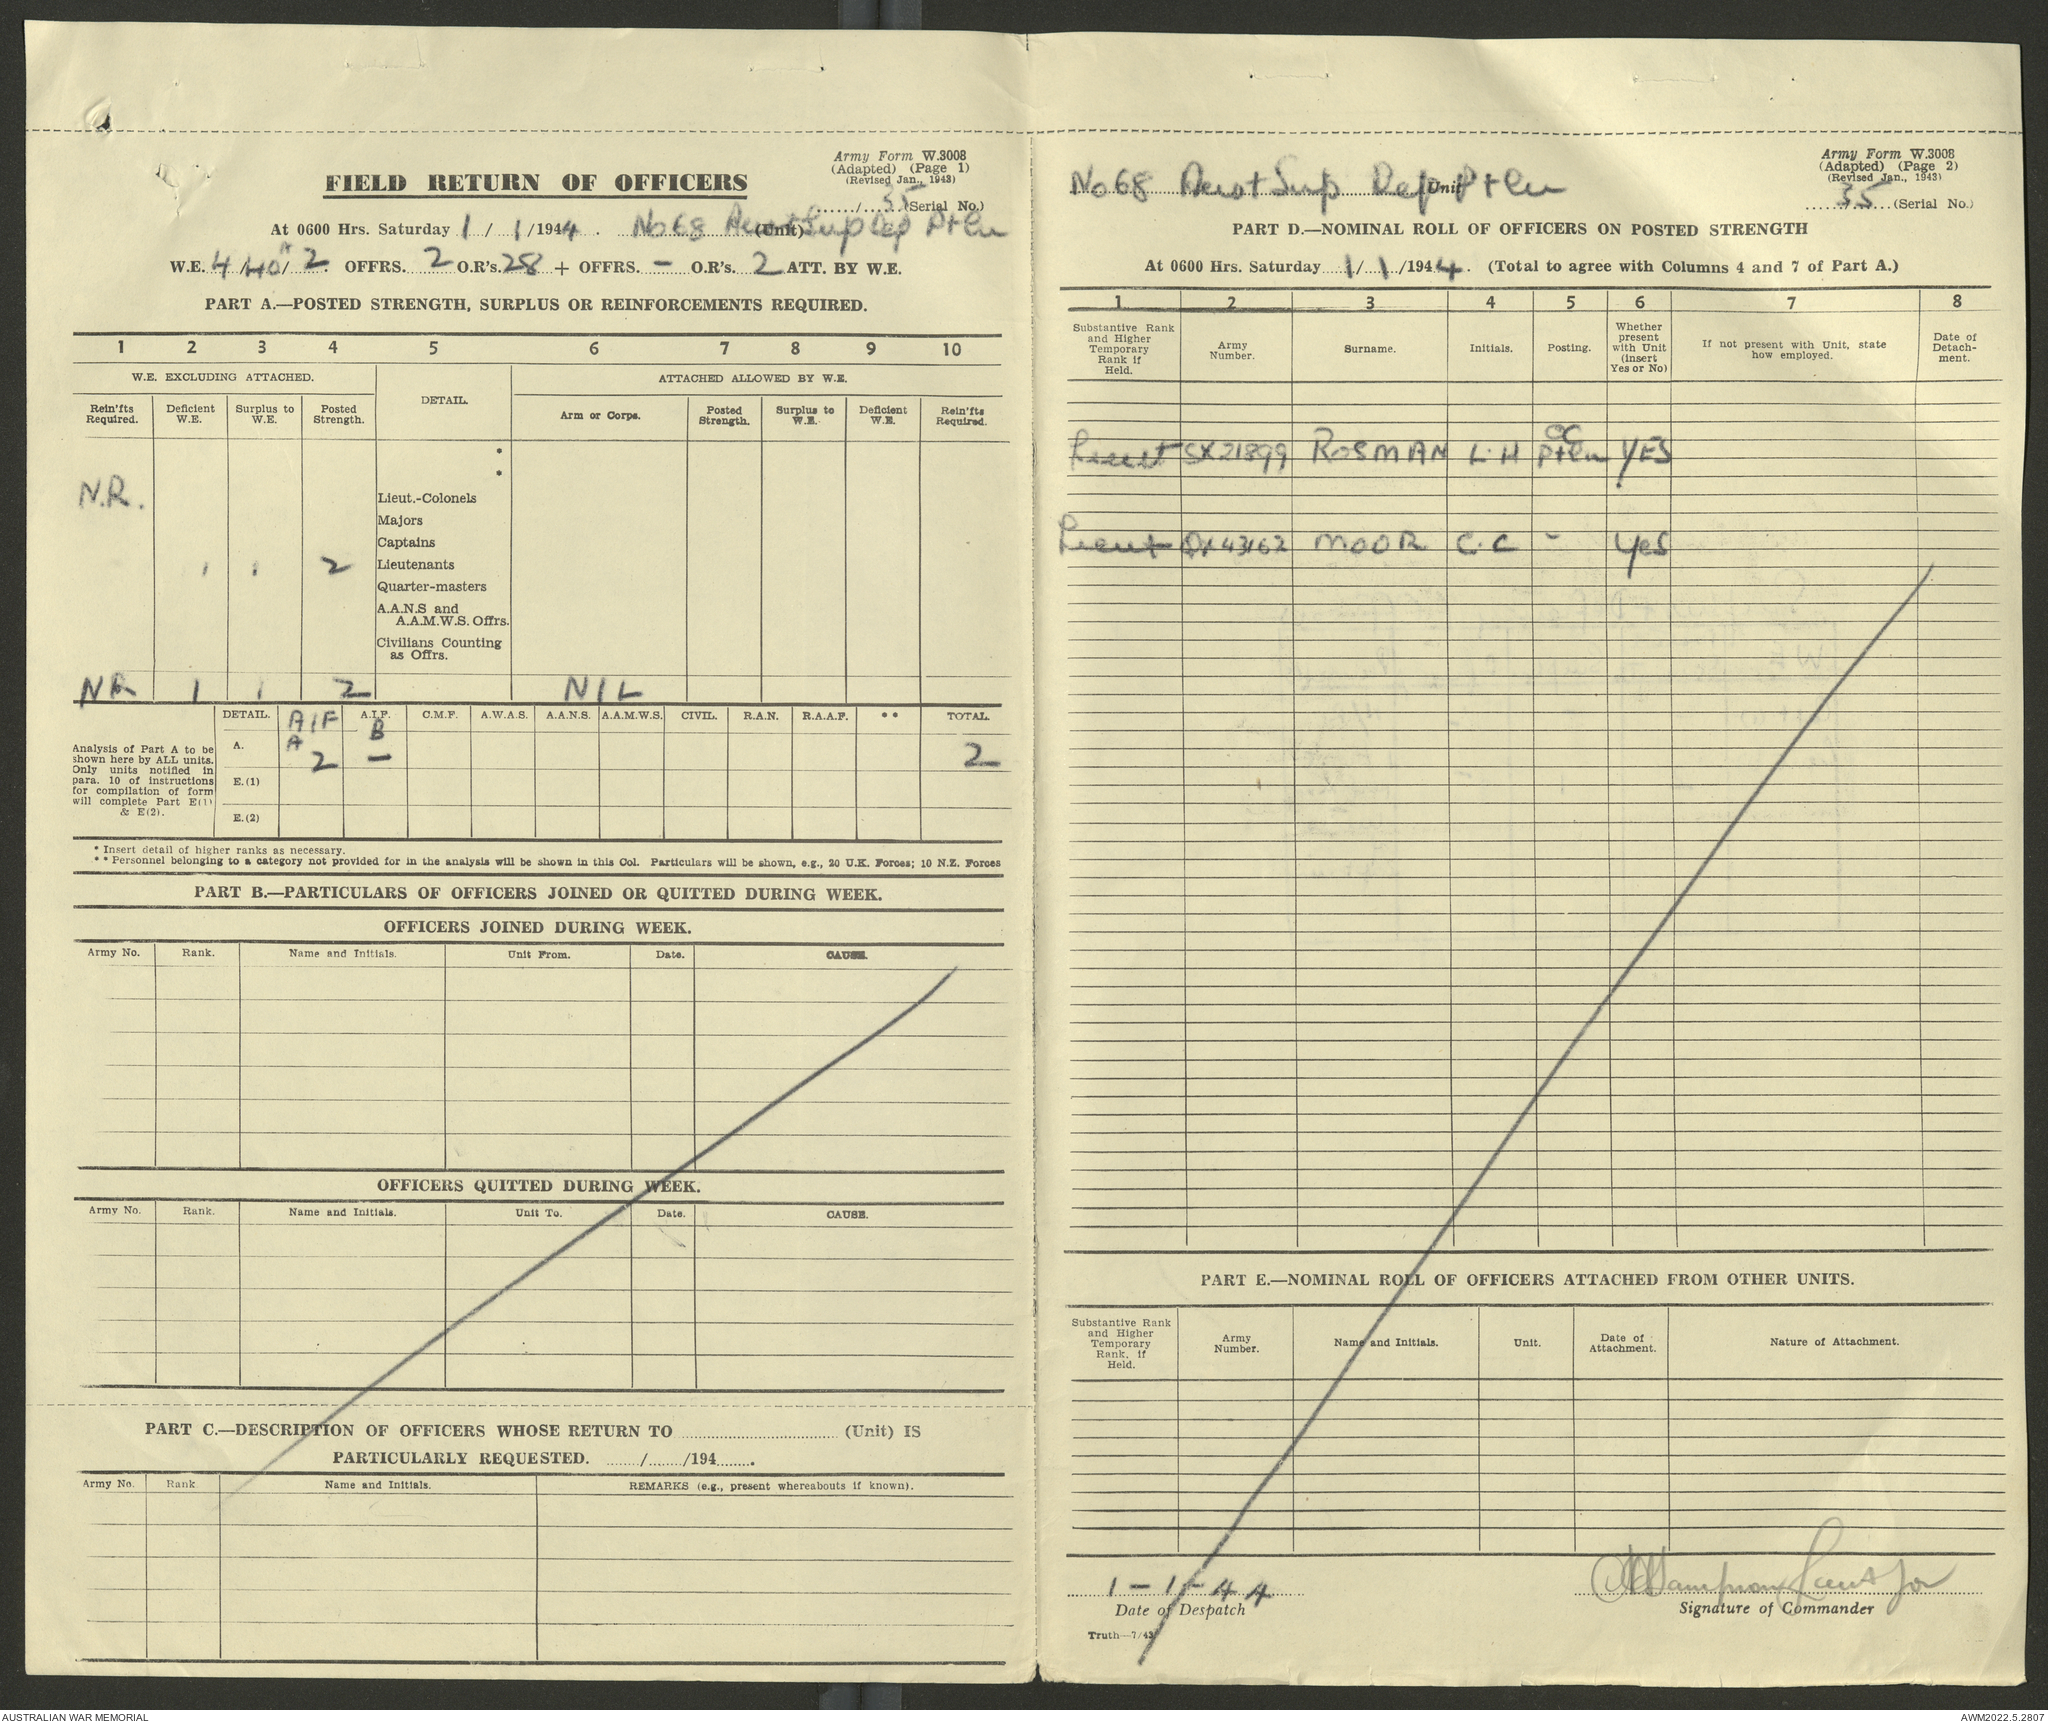 Army Form W.3008
(Adapted) (Page 1)
(Revised Jan., 1943)
FIELD RETURN OF OFFICERS
...../...35...(Serial No.)
At 0600 Hrs. Saturday 1 / 1 /1944. No 68 Sup Dep Ptln (Unit)
W.E. 4 /40A/ 2. OFFRS. 2 O.R's. 28 + OFFRS. - O.R's. 2 ATT. BY W.E.
PART A.—POSTED STRENGTH, SURPLUS OR REINFORCEMENTS REQUIRED.
1 2 3 4 5 6 7 8 9 10
W.E. EXCLUDING ATTACHED. DETAIL. ATTACHED ALLOWED BY W.E.
Rein'fts Required. Deficient W.E. Surplus to W.E. Posted Strength. Arm or Corps. Posted Strength. Surplus to W.E. Deficient W.E. Rein'fts Required.
*
*
N.R. Lieut.-Colonels
Majors
Captains
1 1 2 Lieutenants
Quarter-masters
A.A.N.S and
A.A.M.W.S. Offrs.
Civilians Counting
as Offrs.
NR 1 1 2 NIL
DETAIL. AIF A.I.F. C.M.F. A.W.A.S. A.A.N.S. A.A.M.W.S. CIVIL. R.A.N. R.A.A.F. ** TOTAL.
A B
A. 2 - 2
E.(1)
E.(2)
Analysis of Part A to be
shown here by ALL units.
Only units notified in
para. 10 of instructions
for compilation of form
will complete Part E(1)
& E(2).
* Insert detail of higher ranks as necessary.
** Personnel belonging to a category not provided for in the analysis will be shown in this Col. Particulars will be shown, e.g., 20 U.K. Forces; 10 N.Z. Forces
PART B.—PARTICULARS OF OFFICERS JOINED OR QUITTED DURING WEEK.
OFFICERS JOINED DURING WEEK.
Army No. Rank. Name and Initials. Unit From. Date. CAUSE.
OFFICERS QUITTED DURING WEEK.
Army No. Rank. Name and Initials. Unit To. Date. CAUSE.
PART C.—DESCRIPTION OF OFFICERS WHOSE RETURN TO .......... (Unit) IS
PARTICULARLY REQUESTED. ......../......../194........
Army No. Rank Name and Initials. REMARKS (e.g., present whereabouts if known).
Army Form W.3008
(Adapted) (Page 2)
(Revised Jan., 1943)
No 68 Sup Dep Ptln Unit
35 (Serial No.)
PART D.—NOMINAL ROLL OF OFFICERS ON POSTED STRENGTH
At 0600 Hrs. Saturday 1/ 1 /1944. (Total to agree with Columns 4 and 7 of Part A.)
1 2 3 4 5 6 7 8
Substantive Rank and Higher Temporary Rank if Held. Army Number. Surname. Initials. Posting. Whether present with Unit (insert Yes or No) If not present with Unit, state how employed. Date of Detach-ment.
Lieut SX21899 ROSMAN L.H OC Ptln YES
Lieut 43162 MOOR C.C - Yes
PART E.—NOMINAL ROLL OF OFFICERS ATTACHED FROM OTHER UNITS.
Substantive Rank and Higher Temporary Rank, if Held. Army Number. Name and Initials. Unit. Date of Attachment. Nature of Attachment.
1-1-44
Date of Despatch
Lieut for
Signature of Commander
Truth—7/43
AUSTRALIAN WAR MEMORIAL
AWM2022.5.2807